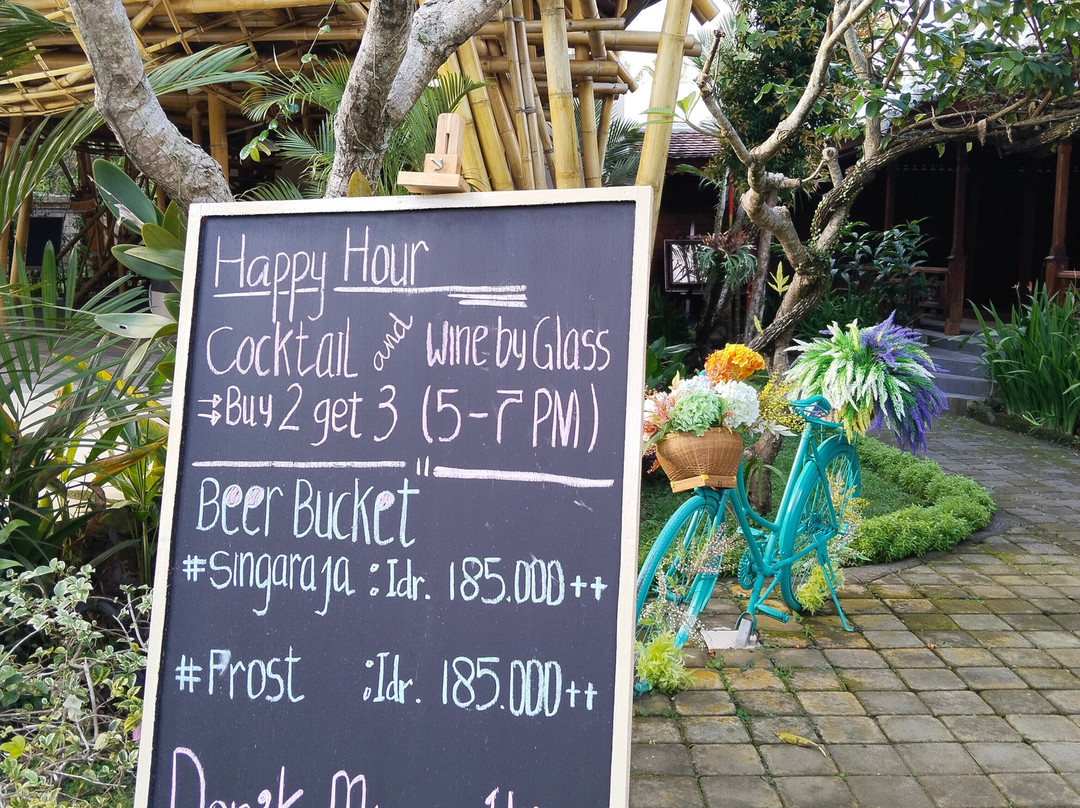 Happy Hour
Cocktail and Wine by Glass
⇉ Buy 2 get 3 (5-7 PM)
Beer Bucket
#Singaraja : Idr. 185.000++
#Prost : Idr. 185.000++